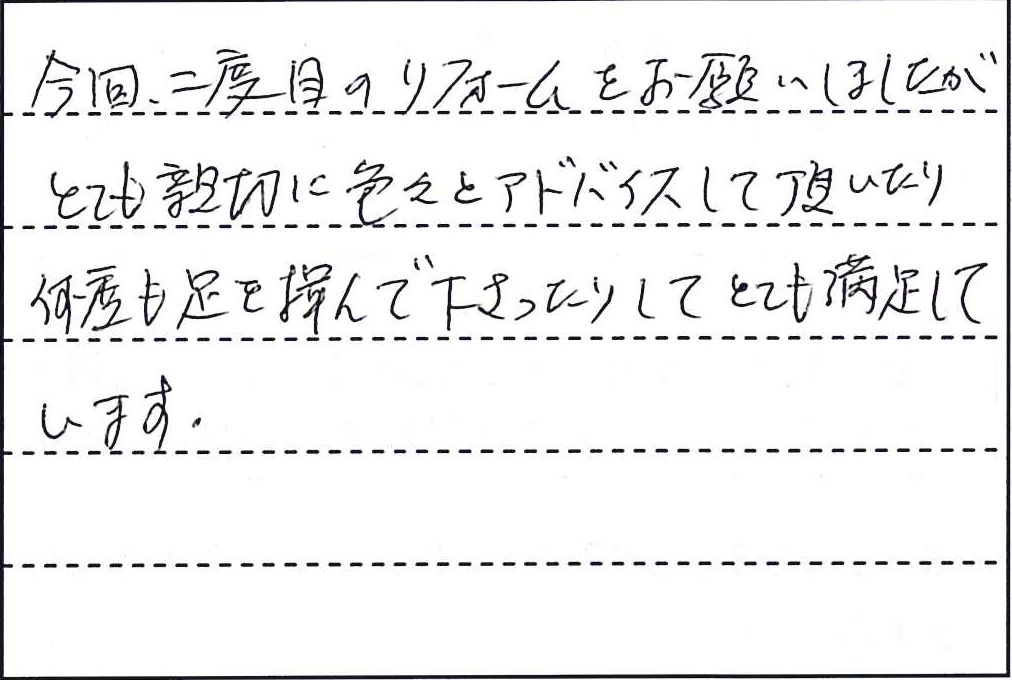 今回、二度目のリフォームをお願いしましたが
とても親切に色々とアドバイスして頂いたり
何度も足を運んで下さったりしてとても満足して
います.